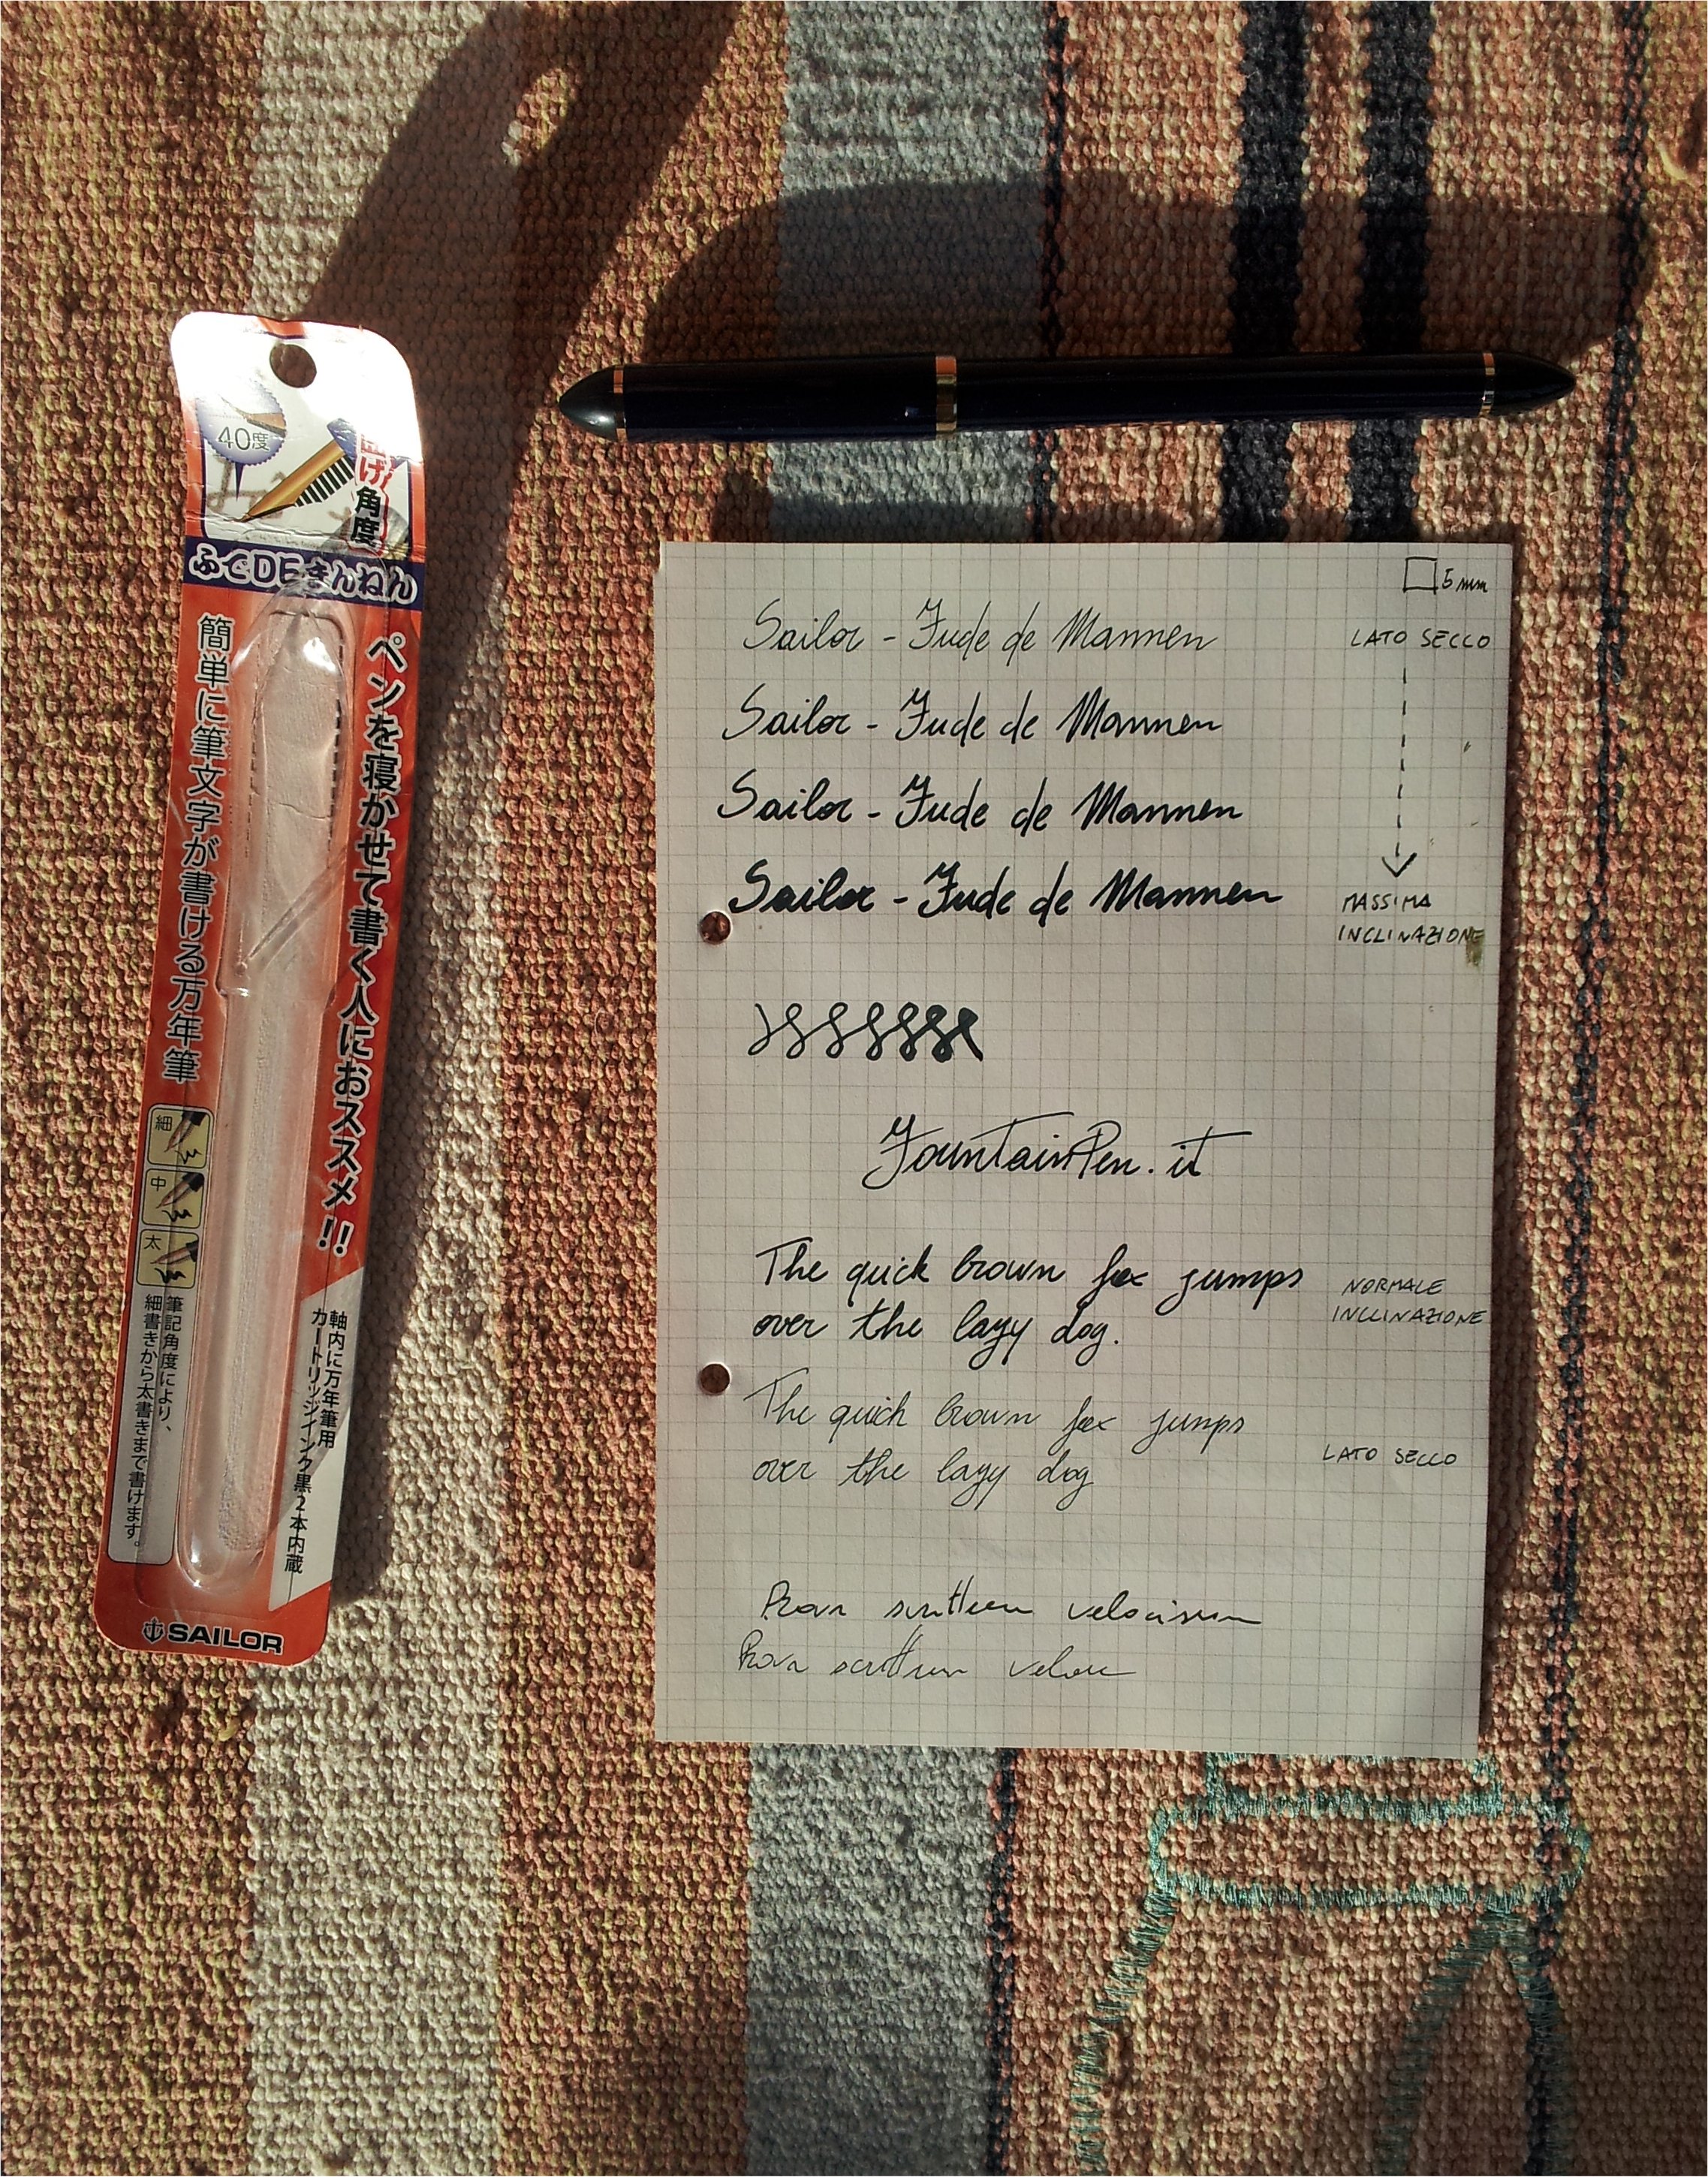 40度
曲げ角度
ふでDEまんねん
ペンを寝かせて書く人におススメ!!
簡単に筆文字が書ける万年筆
細
中
太
筆記角度により、
細書きから太書きまで書けます。
軸内に万年筆用
カートリッジインク黒2本内蔵
SAILOR
5 mm
Sailor - Fude de Mannen
LATO SECCO
Sailor - Fude de Mannen
Sailor - Fude de Mannen
Sailor - Fude de Mannen
MASSIMA
INCLINAZIONE
FountainPen.it
The quick brown fox jumps
over the lazy dog.
NORMALE
INCLINAZIONE
The quick brown fox jumps
over the lazy dog
LATO SECCO
Prova scrittura
Prova scrittura veloce